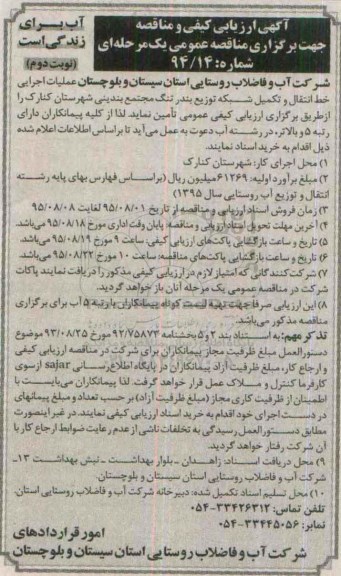 آب برای
زندگی است
(نوبت دوم)
آگهی ارزیابی کیفی و مناقصه
جهت برگزاری مناقصه عمومی یک مرحله‌ای
شماره: ۹۴/۱۴
شرکت آب و فاضلاب روستایی استان سیستان و بلوچستان عملیات اجرایی
خط انتقال و تکمیل شبکه توزیع بندر تنگ مجتمع بندینی شهرستان کنارک را
از طریق برگزاری ارزیابی کیفی عمومی تأمین نماید. لذا از کلیه پیمانکاران دارای
رتبه ۵ و بالاتر، در رشته آب دعوت به عمل می‌آید تا براساس اطلاعات اعلام شده
ذیل اقدام به خرید اسناد نمایند.
۱) محل اجرای کار: شهرستان کنارک
۲) مبلغ برآورد اولیه: ۶۱۲۶۹ میلیون ریال (براساس فهارس بهای پایه رشته
انتقال و توزیع آب روستایی سال ۱۳۹۵)
۳) زمان فروش اسناد ارزیابی و مناقصه از تاریخ ۹۵/۰۸/۰۱ لغایت ۹۵/۰۸/۰۸
۴) آخرین مهلت تحویل اسناد ارزیابی و مناقصه: پایان وقت اداری مورخ ۹۵/۰۸/۱۸ می‌باشد.
۵) تاریخ و ساعت بازگشایی پاکت‌های ارزیابی کیفی: ساعت ۹ مورخ ۹۵/۰۸/۱۹ می‌باشد.
۶) تاریخ و ساعت بازگشایی پاکت‌های مناقصه: ساعت ۱۰ مورخ ۹۵/۰۸/۲۲ می‌باشد.
۷) شرکت‌کنندگانی که امتیاز لازم در ارزیابی کیفی مذکور را دریافت نمایند پاکات
شرکت در مناقصه عمومی یک مرحله آنان باز خواهد گردید.
۸) این ارزیابی صرفاً جهت تهیه لیست کوتاه پیمانکاران با رتبه ۵ آب برای برگزاری
مناقصه مذکور می‌باشد.
تذکر مهم: به استناد بند ۲ و ۵ بخشنامه ۹۲/۷۵۸۷۳ مورخ ۹۳/۰۸/۲۵ موضوع
دستورالعمل مبلغ ظرفیت مجاز پیمانکاران برای شرکت در مناقصه ارزیابی کیفی
و ارجاع کار، مبلغ ظرفیت آزاد پیمانکاران در پایگاه اطلاع‌رسانی sajar از سوی
کارفرما کنترل و ملاک عمل قرار خواهد گرفت. لذا پیمانکاران می‌بایست با
اطمینان از ظرفیت کاری مجاز (مبلغ ظرفیت آزاد) بر حسب تعداد و مبلغ پیمانهای
در دست اجرای خود اقدام به خرید اسناد ارزیابی کیفی نمایند. در غیر اینصورت
مطابق دستورالعمل رسیدگی به تخلفات ناشی از عدم رعایت ضوابط ارجاع کار با
آن شرکت رفتار خواهد گردید.
۹) محل دریافت اسناد: زاهدان - بلوار بهداشت - نبش بهداشت ۱۳-
شرکت آب و فاضلاب روستایی استان سیستان و بلوچستان.
۱۰) محل تسلیم اسناد تکمیل شده: دبیرخانه شرکت آب و فاضلاب روستایی استان.
تلفن تماس: ۳۳۴۲۶۳۱۲-۰۵۴
نمابر: ۳۳۴۴۵۰۵۶-۰۵۴
امور قراردادهای
شرکت آب و فاضلاب روستایی استان سیستان و بلوچستان